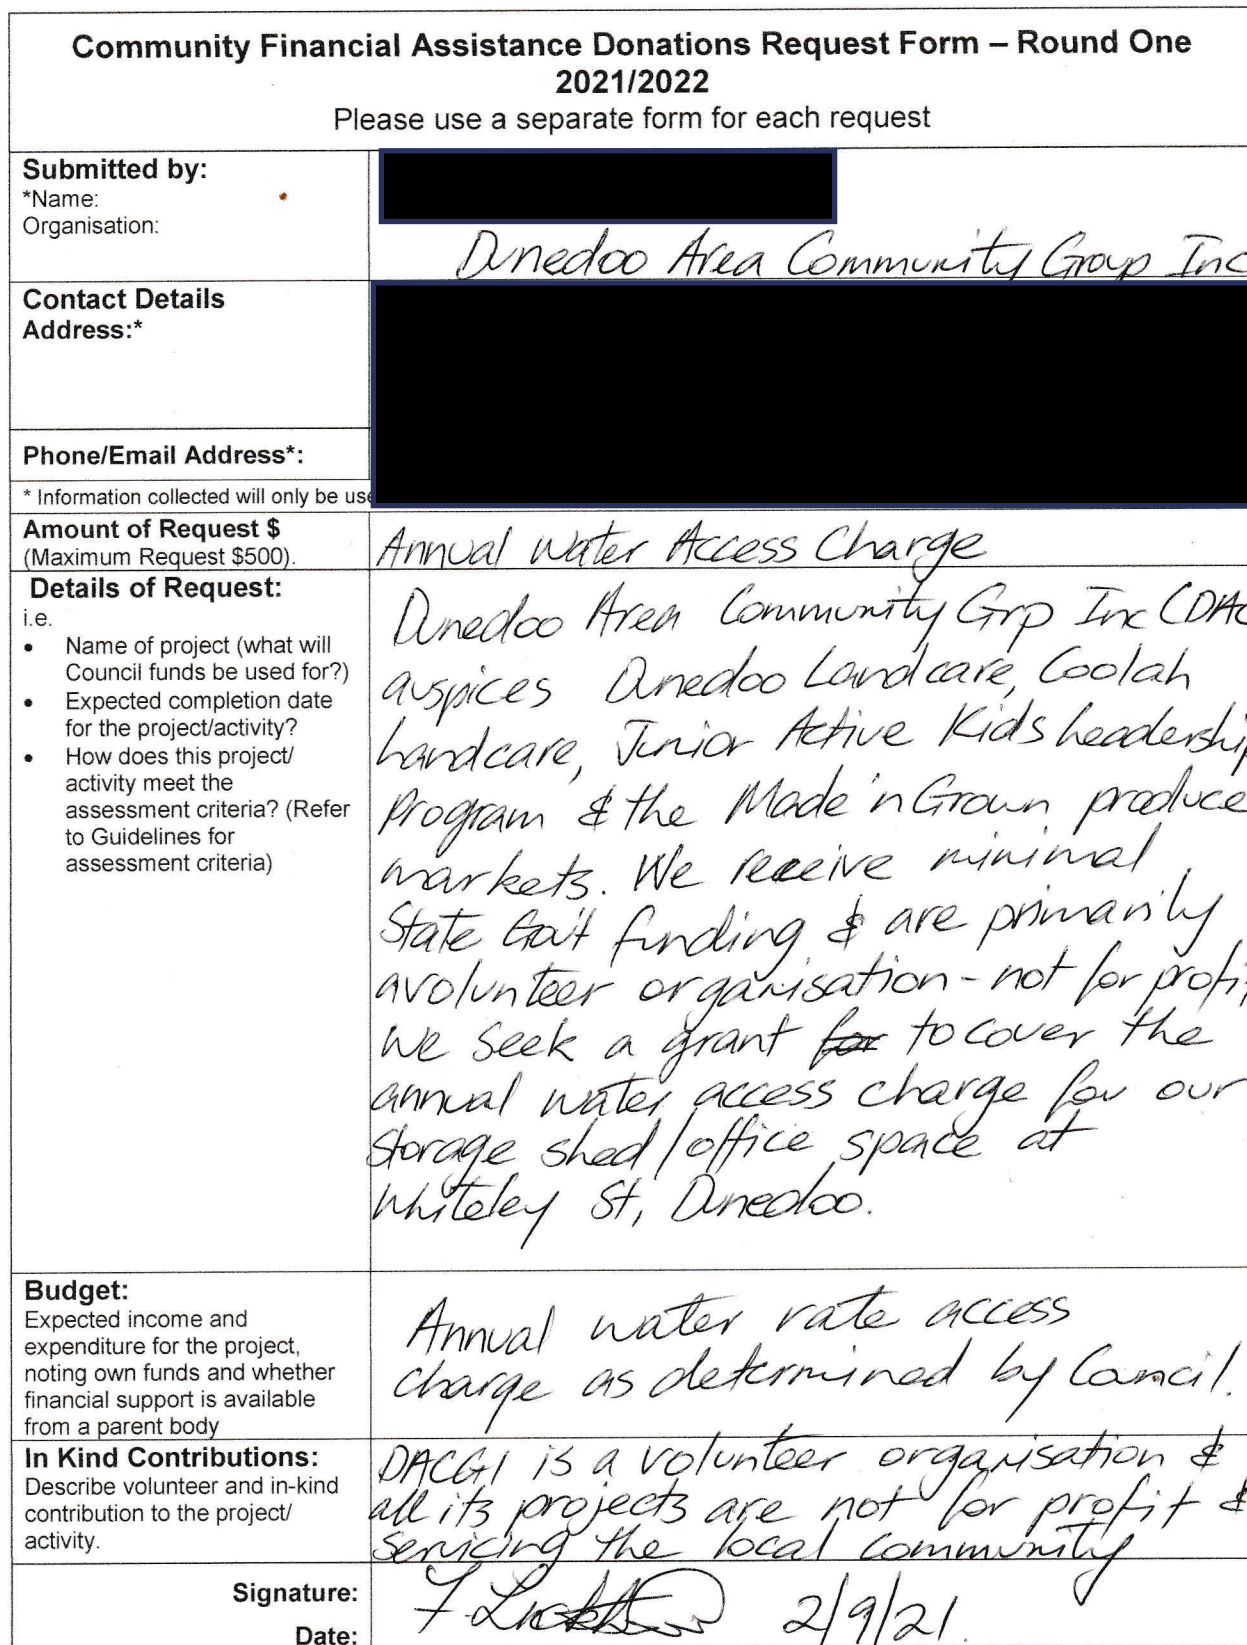 Community Financial Assistance Donations Request Form – Round One
2021/2022
Please use a separate form for each request
Submitted by:
*Name:
Organisation:
Dunedoo Area Community Group Inc
Contact Details
Address:*
Phone/Email Address*:
* Information collected will only be use
Amount of Request $
(Maximum Request $500).
Annual Water Access Charge
Details of Request:
i.e.
• Name of project (what will
Council funds be used for?)
• Expected completion date
for the project/activity?
• How does this project/
activity meet the
assessment criteria? (Refer
to Guidelines for
assessment criteria)
Dunedoo Area Community Grp Inc (DAC
auspices Dunedoo Landcare, Coolah
Landcare, Junior Active Kids Leadership
Program & the Made 'n Grown produce
markets. We receive minimal
State Gov't funding & are primarily
a volunteer organisation - not for profit
We seek a grant for to cover the
annual water access charge for our
storage shed/office space at
Whiteley St, Dunedoo.
Budget:
Expected income and
expenditure for the project,
noting own funds and whether
financial support is available
from a parent body
Annual water rate access
charge as determined by Council.
In Kind Contributions:
Describe volunteer and in-kind
contribution to the project/
activity.
DACGI is a volunteer organisation &
all its projects are not for profit &
servicing the local community
Signature:
Date:
2/9/21.